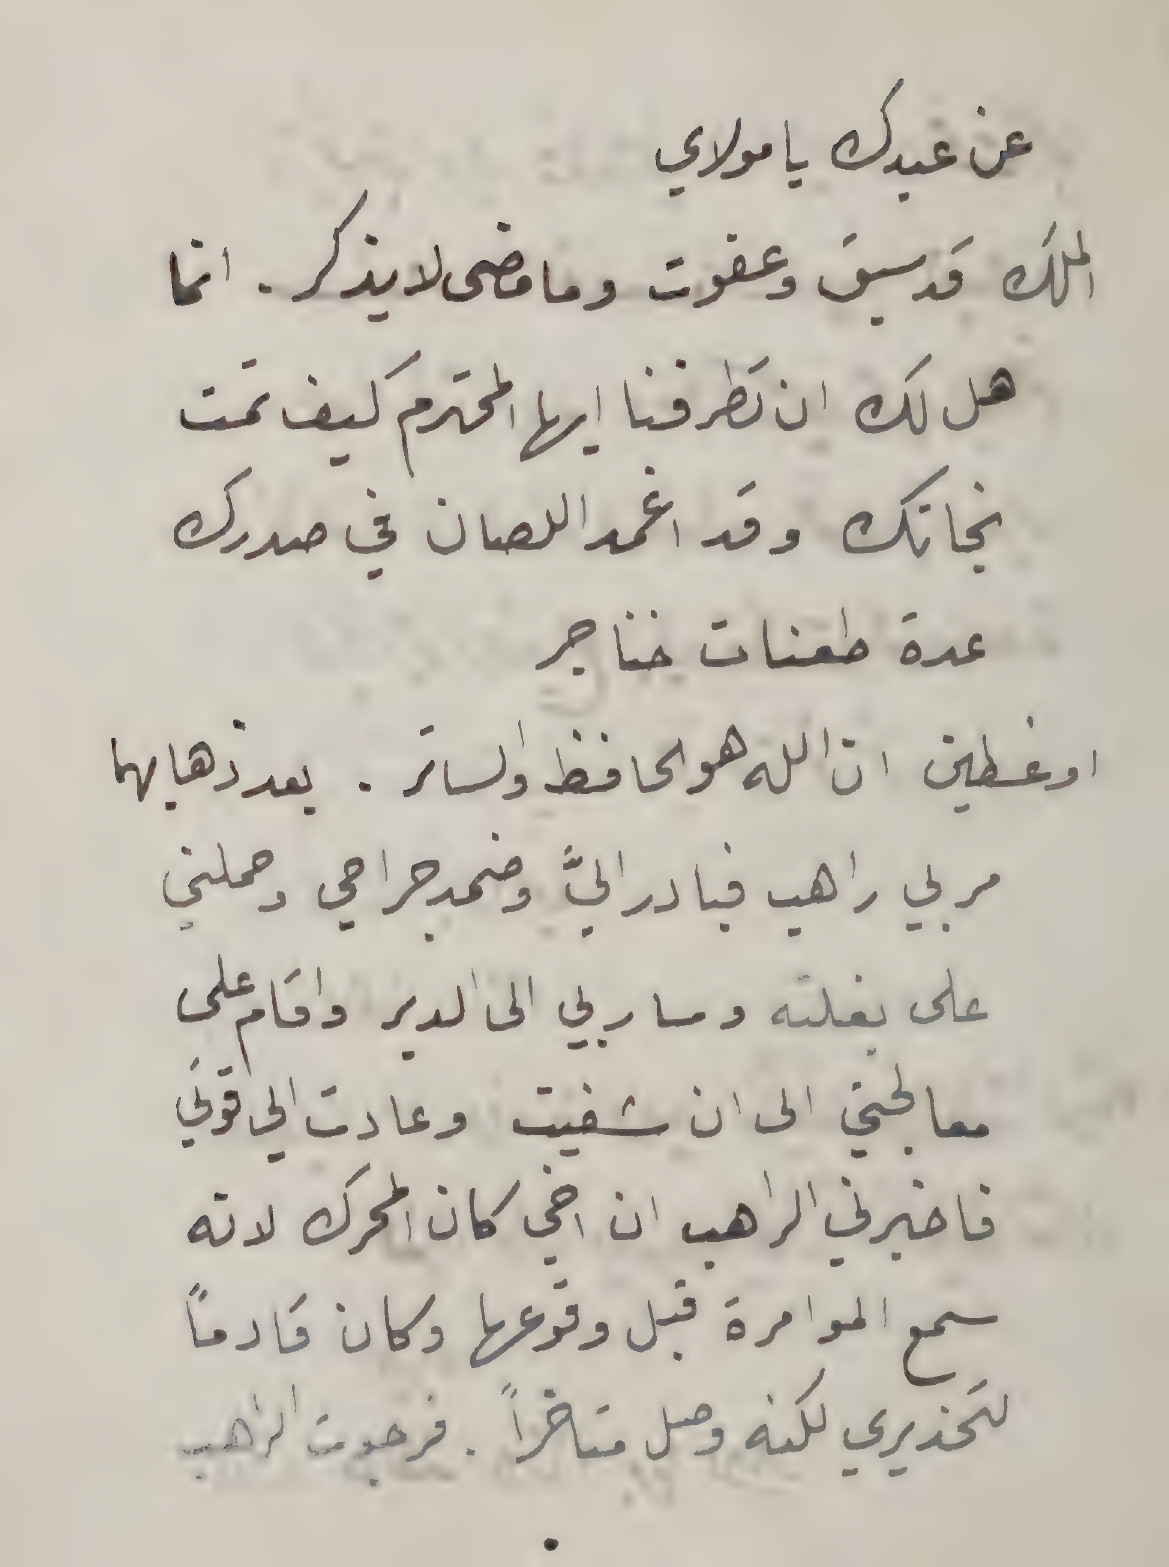 عن عبدك يا مولاي
الملك قد سبق وعفوت وما مضى لا يذكر . انما
هل لك ان تطرفنا ايها المحترم كيف تمت
نجاتك وقد اغمد اللصان في صدرك
عدة طعنات خناجر
اوغسطين ان الله هو الحافظ والساتر . بعد ذهابهما
مر بي راهب فبادر اليَّ وضمد جراحي وحملني
على بغلته وسار بي الى الدير واقام على
معالجتي الى ان شفيت وعادت الي قوتي
فاخبرني الراهب ان اخي كان المحرك لانه
سمع الموامرة قبل وقوعها وكان قادماً
لتحذيري لكنه وصل متاخراً . فرجوت الراهب